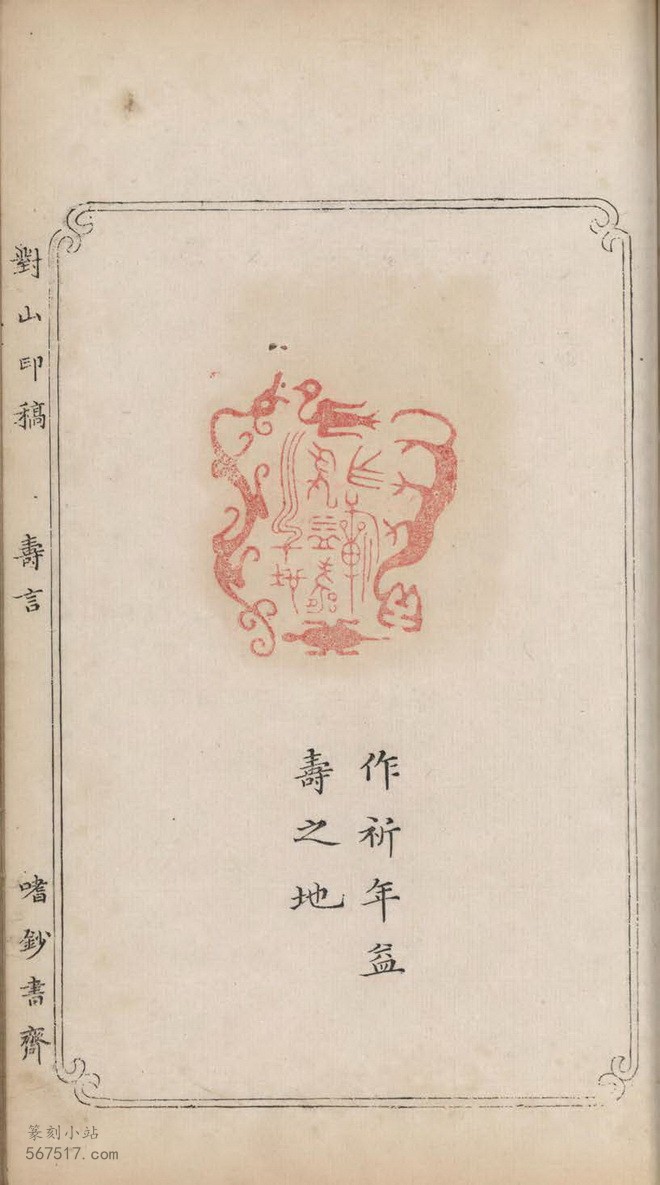 作祈年益
壽之地
對山印稿 壽言
嗜鈔書齋
篆刻小站
567517.com